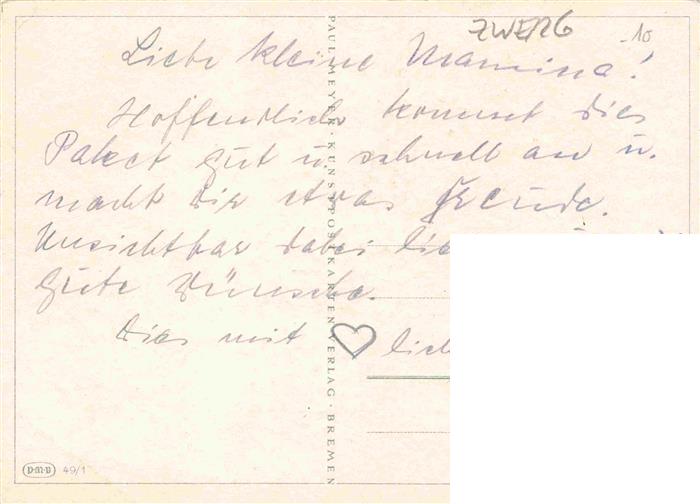 ZWERG
-.10
Liebe kleine Mamina!
Hoffentlich kommt dies
Paket gut u. schnell an u.
macht Dir etwas Freude.
Unsichtbar dabei
Gute Wünsche.
Dies mit ♡ lich
PAUL MEYER · KUNSTPOSTKARTEN-VERLAG · BREMEN
p·m·b 49/1